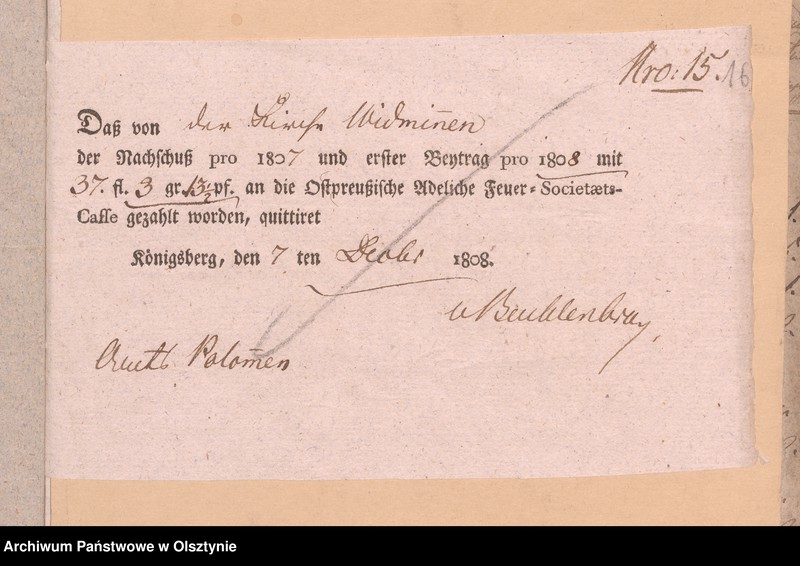 Nro: 15. 16
Daß von der Kirche Widminnen
der Nachschuß pro 1807 und erster Beytrag pro 1808 mit
37. fl. 3 gr. 13½ pf. an die Ostpreußische Adeliche Feuer-Societæts-
Casse gezahlt worden, quittiret
Königsberg, den 7 ten Decbr 1808.
Amts Polom̅en
Archiwum Państwowe w Olsztynie